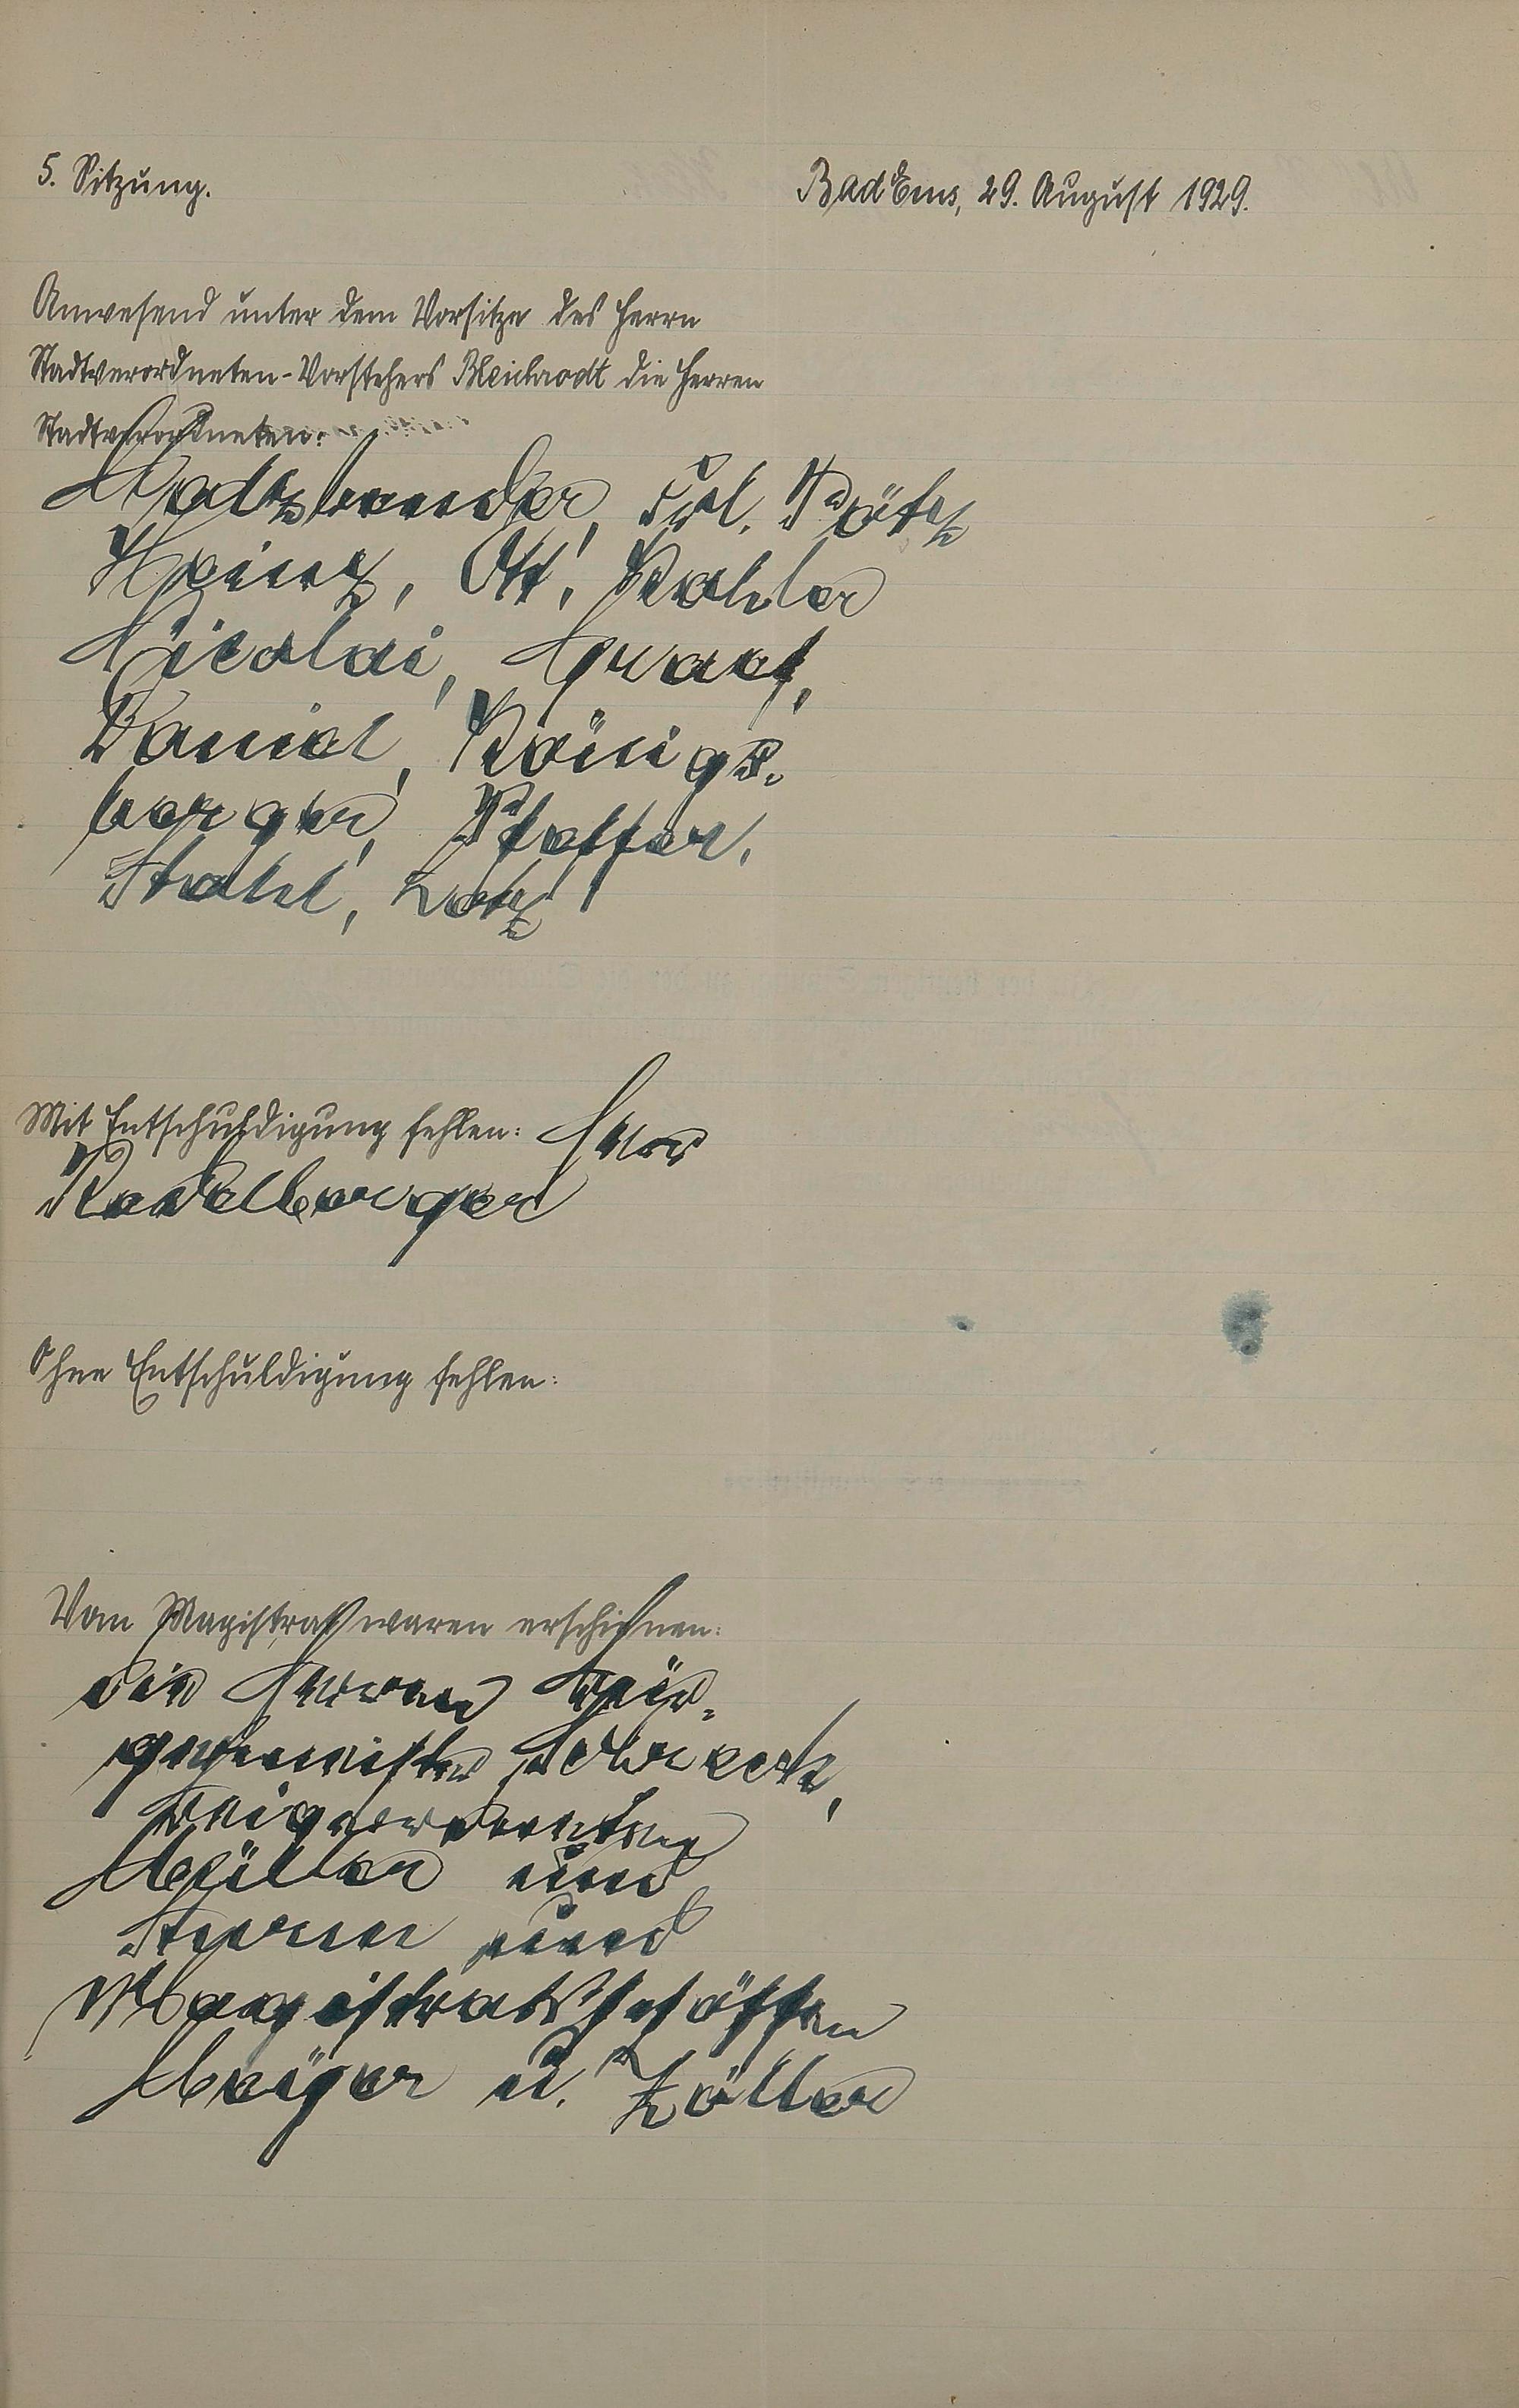 5. Sitzung.
Bad Ems, 29. August 1929.
Anwesend unter dem Vorsitze des Herrn
Stadtverordneten-Vorstehers Bleichrodt die Herren
Stadtverordneten:
Frl. Pötz
Heinz, Ott, Kohler
Nicolai, Graef,
Daniel, Königs-
berger, Pfeffer,
Stahl, Lotz
Mit Entschuldigung fehlen: Herr
Kadelberger
Ohne Entschuldigung fehlen:
Vom Magistrat waren erschienen:
die Herren Bür-
germeister Schreck,
Beigeordneten
Müller und
Sturm und
Magistratsschöffen
Meyer u. Zöller